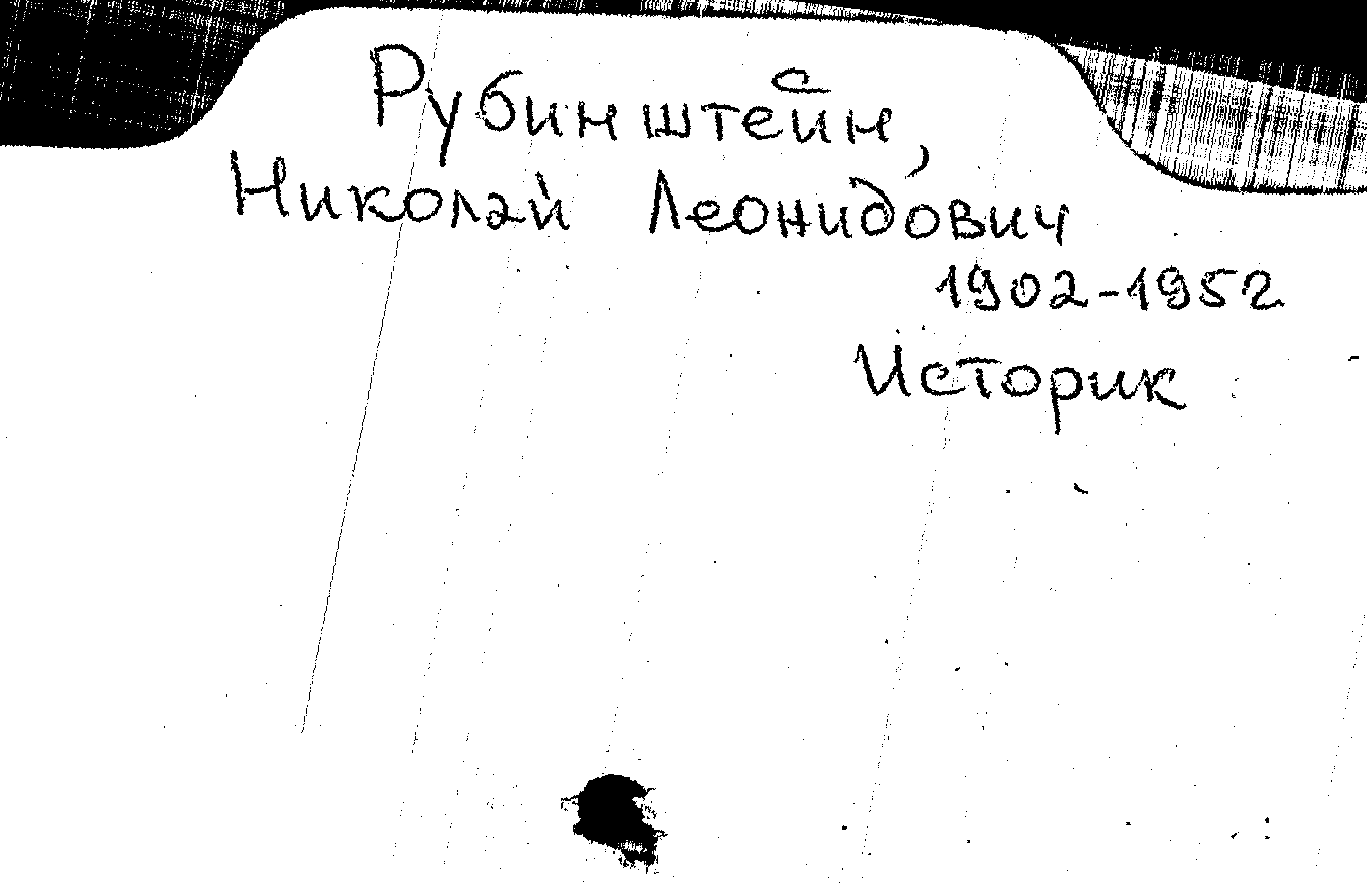 Рубинштейн,
Николай Леонидович
1902-1952
Историк